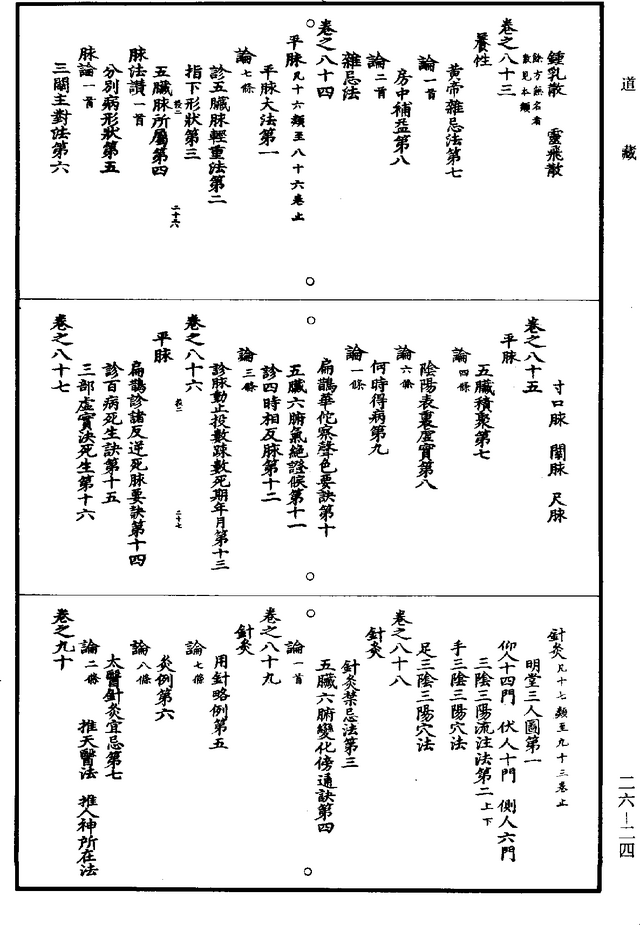 道藏
鍾乳散　靈飛散
餘方無名者
散見本類
卷之八十三
養性
黃帝雜忌法第七
論一首
房中補益第八
論二首
雜忌法
卷之八十四
平脉凡十六類至八十六卷止
平脉大法第一
論七條
診五臟脉輕重法第二
指下形狀第三
投二　二十六
五臟脉所屬第四
脉法讚一首
分別病形狀第五
脉論一首
三關主對法第六
寸口脉　關脉　尺脉
卷之八十五
平脉
五臟積聚第七
論四條
陰陽表裏虛實第八
論六條
何時得病第九
論一條
扁鵲華佗察聲色要訣第十
五臟六腑氣絕證候第十一
診四時相反脉第十二
論三條
診脉動止投數疎數死期年月第十三
卷之八十六
投二　二十七
平脉
扁鵲診諸反逆死脉要訣第十四
診百病死生訣第十五
三部虛實決死生第十六
卷之八十七
針灸凡十七類至九十三卷止
明堂三人圖第一
仰人十四門　伏人十門　側人六門
三陰三陽流注法第二上下
手三陰三陽穴法
足三陰三陽穴法
卷之八十八
針灸
針灸禁忌法第三
五臟六腑變化傍通訣第四
論一首
卷之八十九
針灸
用針略例第五
論七條
灸例第六
論八條
太醫針灸宜忌第七
論二條　推天醫法　推人神所在法
卷之九十
二六—二四